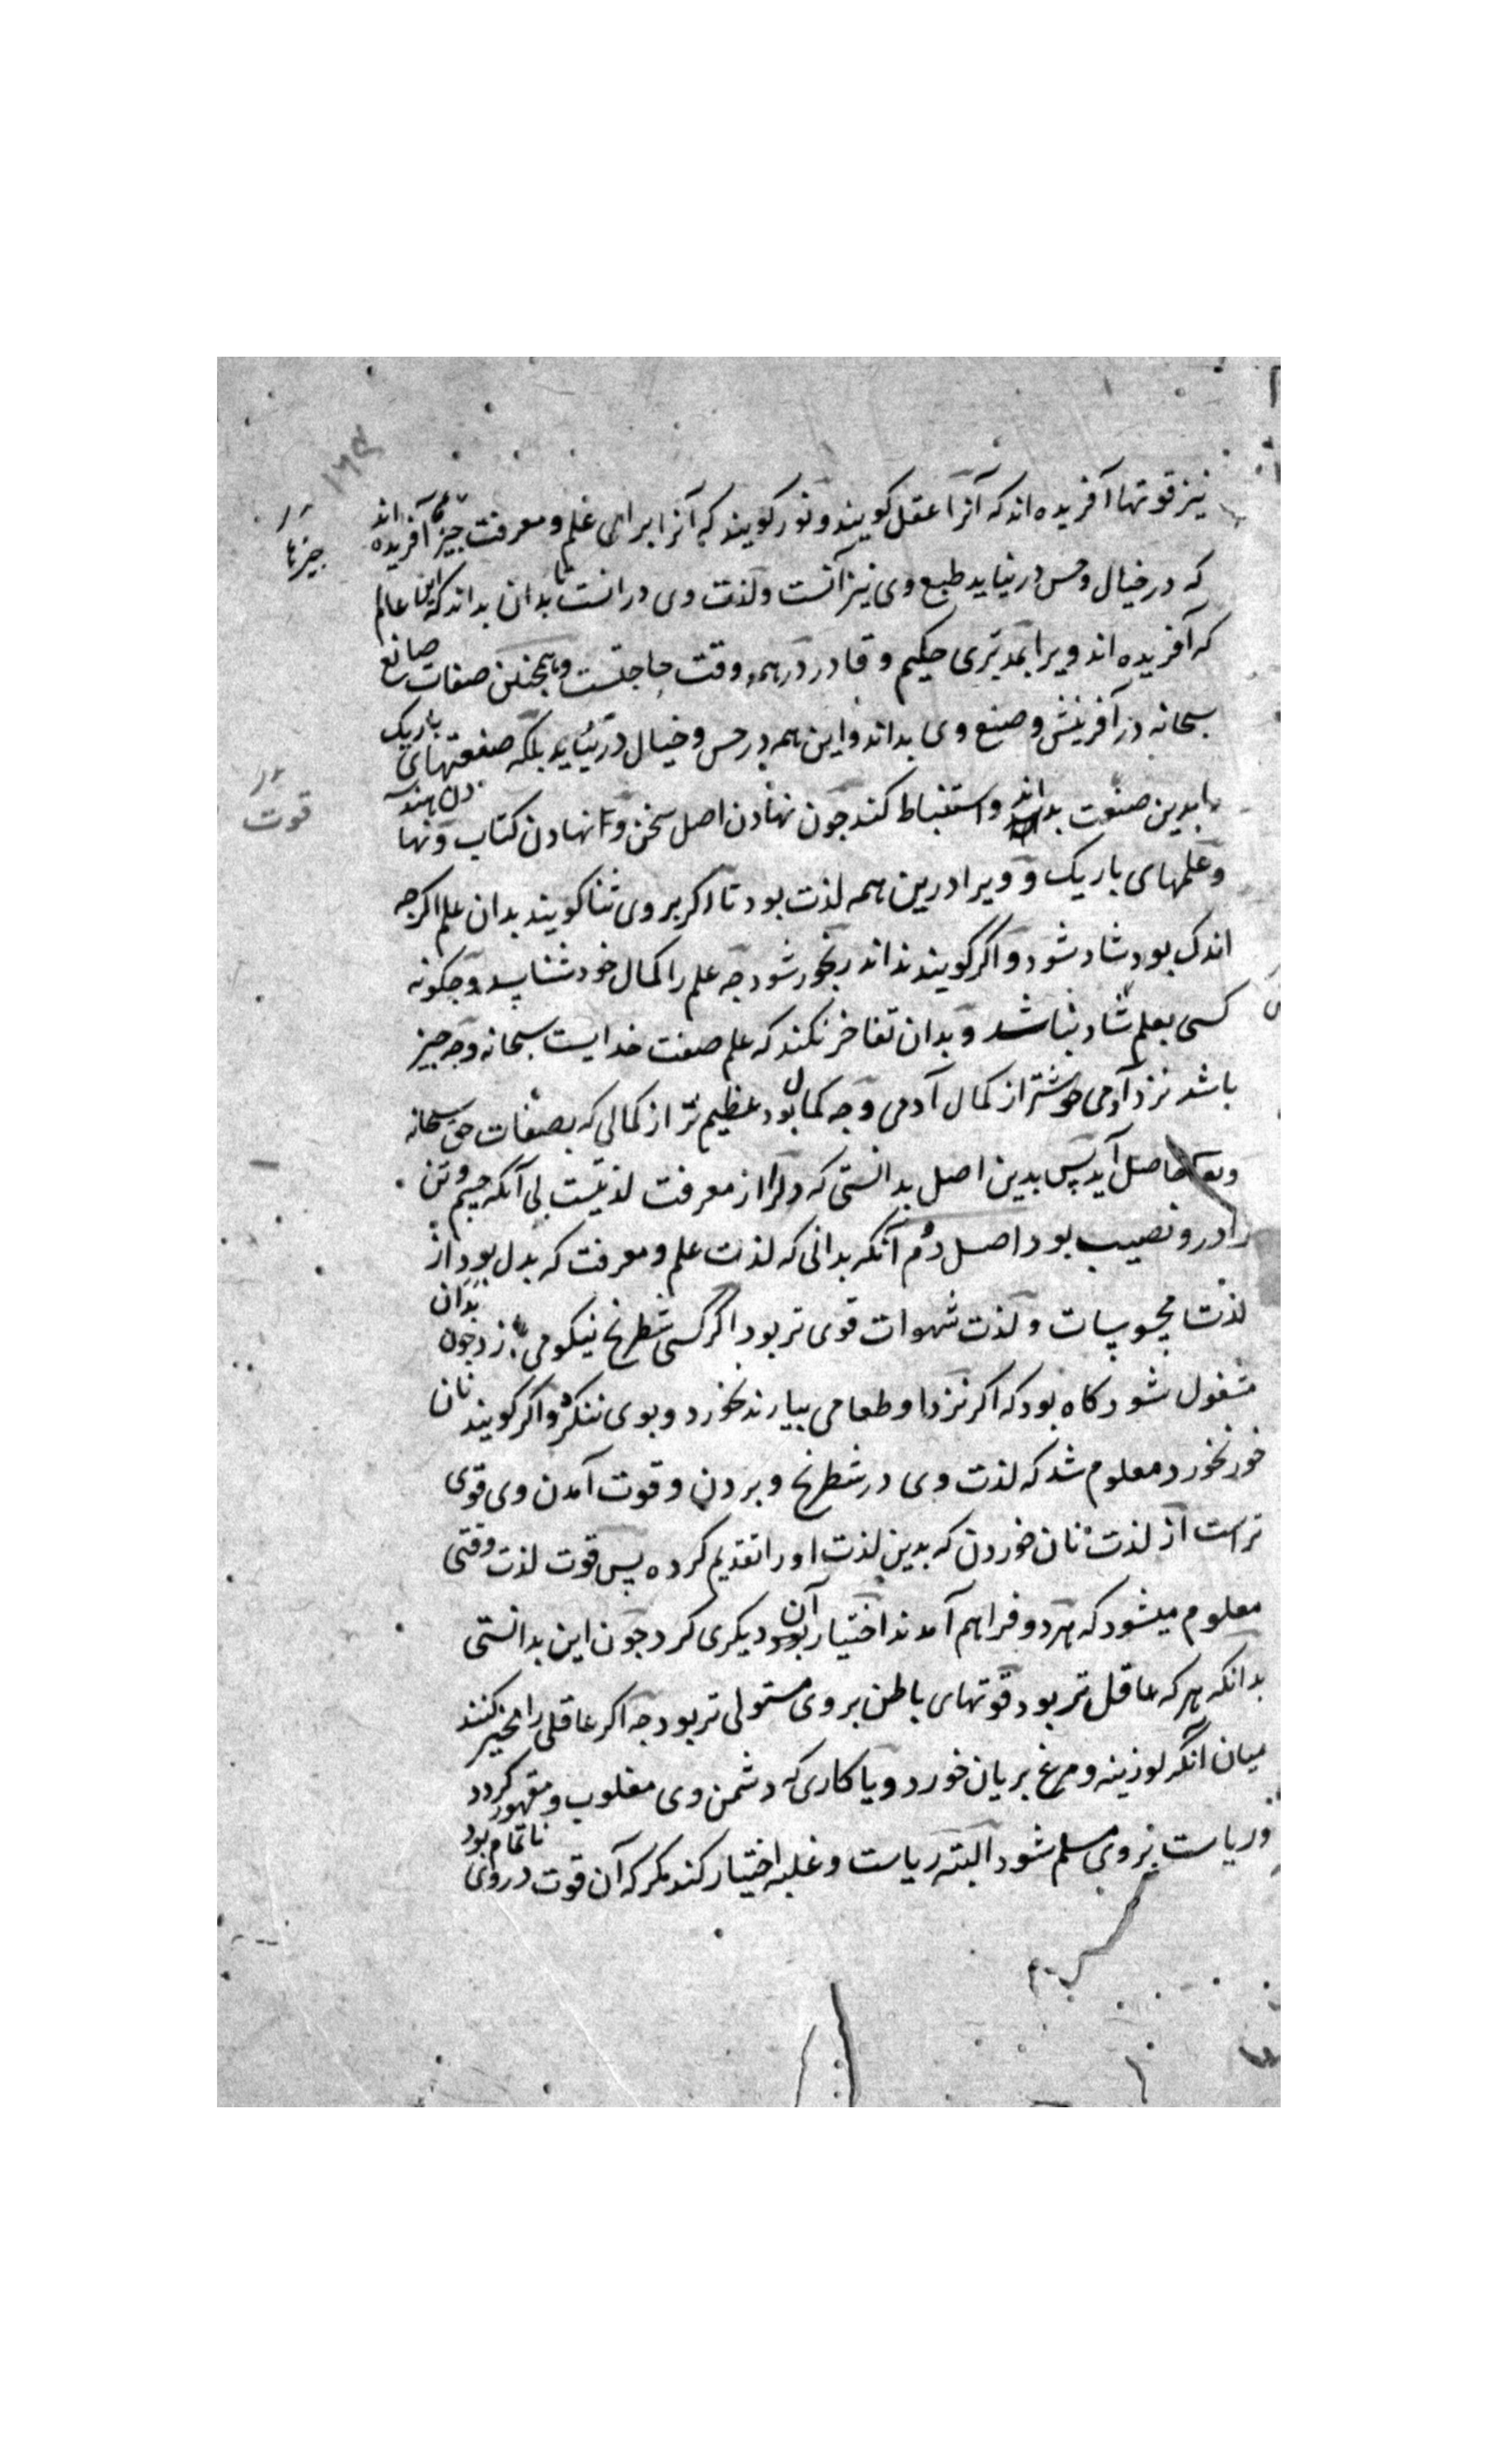 ۱۶۴
نیز قوتها آفریده اند که آنرا عقل کویند و نور کویند که آنرا برای علم و معرفت چیزهایی آفریده اند
چیزها
که در خیال و حس در نیاید طبع وی نیز آنست و لذت وی درانست تا بدان بداند که این عالم
که آفریده اند ویرا بمدبری حکیم و قادر در همه وقت حاجتست و همچنین صفات صانع
سبحانه در آفرینش و صنع وی بداند و این همه در حس و خیال در نیاید بلکه صنعتهای باریک
را بدین صنوت بداند و استنباط کند چون نهادن اصل سخن و نهادن کتاب و نهادن هندسه
قوت
و علمهای باریک و ویرا درین همه لذت بود تا اکر بروی ثنا کویند بدان علم اکرچه
اندک بود شاد شود و اکر کویند نداند رنجور شود چه علم را کمال خود شناسد و چکونه
کسی بعلم شاد نباشد و بدان تفاخر نکند که علم صفت خدایست سبحانه و چه چیز
باشد نزد آدمی خوشتر از کمال آدمی و چه کمال بود عظیم تر از کمالی که بصفات حق سبحانه
وتعا حاصل آید پس بدین اصل بدانستی که دلرا از معرفت لذتیست بی آنکه جسم و تن
را درو نصیب بود اصل دوم آنکه بدانی که لذت علم و معرفت که بدل بود از
لذت محسوسات و لذت شهوات قوی تر بود اکر کسی شطرنج نیکو می بازد چون بدان
مشغول شود کاه بود که اکر نزد او طعامی بیارند نخورد و بوی ننکرد و اکر کویند نان
خور نخورد معلوم شد که لذت وی در شطرنج و بردن و قوت آمدن وی قوی
تر است از لذت نان خوردن که بدین لذت او را تقدیم کرده پس قوت لذت وقتی
معلوم میشود که هردو فراهم آمدند اختیار آن بود دیکری کرد چون این بدانستی
بدانکه هرکه عاقل تر بود قوتهای باطن بروی مستولی تر بود چه اکر عاقلی را مخیر کنند
میان آنکه لوزینه و مرغ بریان خورد و یا کاری که دشمن وی مغلوب و مقهور کردد
و ریاست بروی مسلم شود البته ریاست و غلبه اختیار کند مکر که آن قوت در وی ناتمام بود